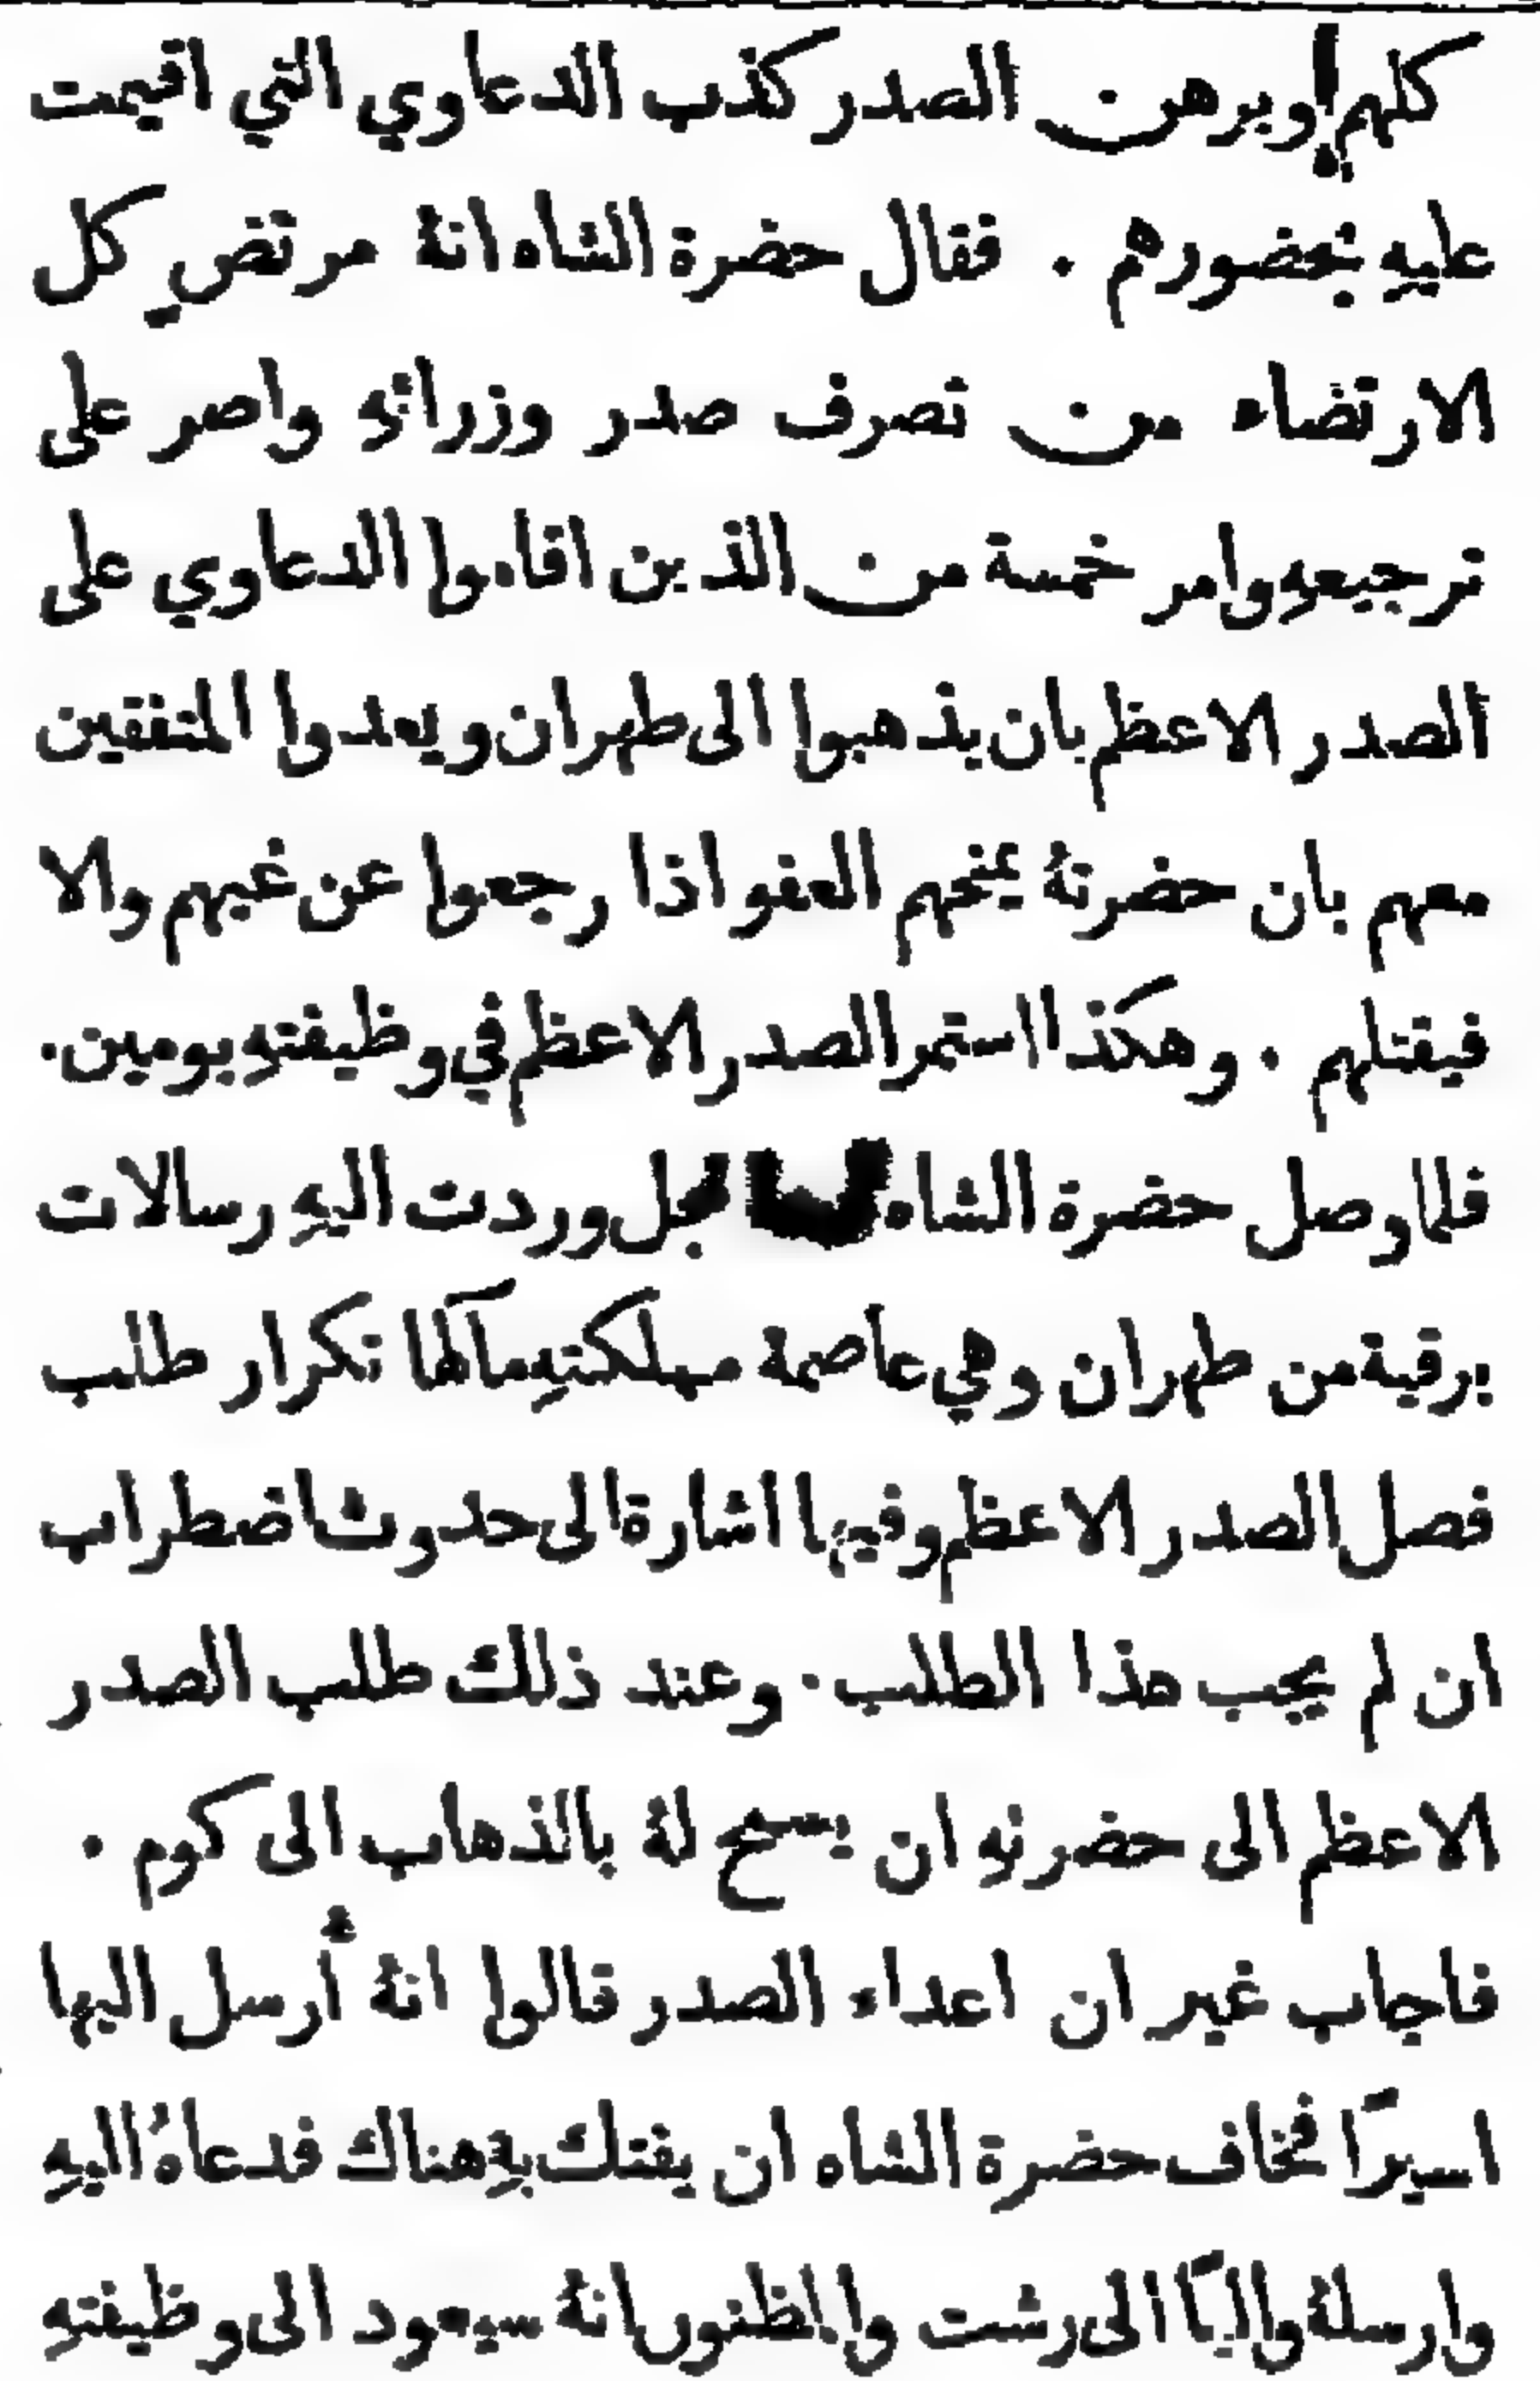 كلهم وبرهن الصدر كذب الدعاوي التي اقيمت
عليهِ بحضورهم . فقال حضرة الشاه انهُ مرتضٍ كل
الارتضاء من تصرف صدر وزرائهِ واصر على
ترجيعهِ وامر خمسة من الذين اقاموا الدعاوي على
الصدر الاعظم بان يذهبوا الى طهران ويعدوا المتفقين
معهم بان حضرتهُ يمنحهم العفو اذا رجعوا عن غيهم والا
فيقتلهم . وهكذا استمر الصدر الاعظم في وظيفتهِ يومين .
فلما وصل حضرة الشاه وردت اليهِ رسالات
برقية من طهران وهي عاصمة مملكتهِ مآلها تكرار طلب
فصل الصدر الاعظم وفيها اشارة الى حدوث اضطراب
ان لم يجب هذا الطلب . وعند ذلك طلب الصدر
الاعظم الى حضرتهِ ان يسمح لهُ بالذهاب الى كوم .
فاجاب غير ان اعداء الصدر قالوا انهُ أُرسل اليها
اسيرًا فخاف حضرة الشاه ان يفتك بهِ هناك فدعاهُ اليهِ
وارسلهُ واليًا الى رشت والمظنون انهُ سيعود الى وظيفتهِ